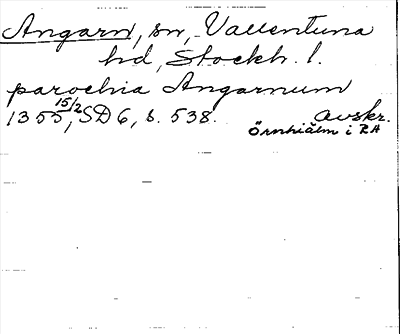 Angarn, sn, Vallentuna
hd, Stockh. l.
parochia Angarnum
1355 15/2, SD 6, s. 538. avskr.
Örnhiälm i RA